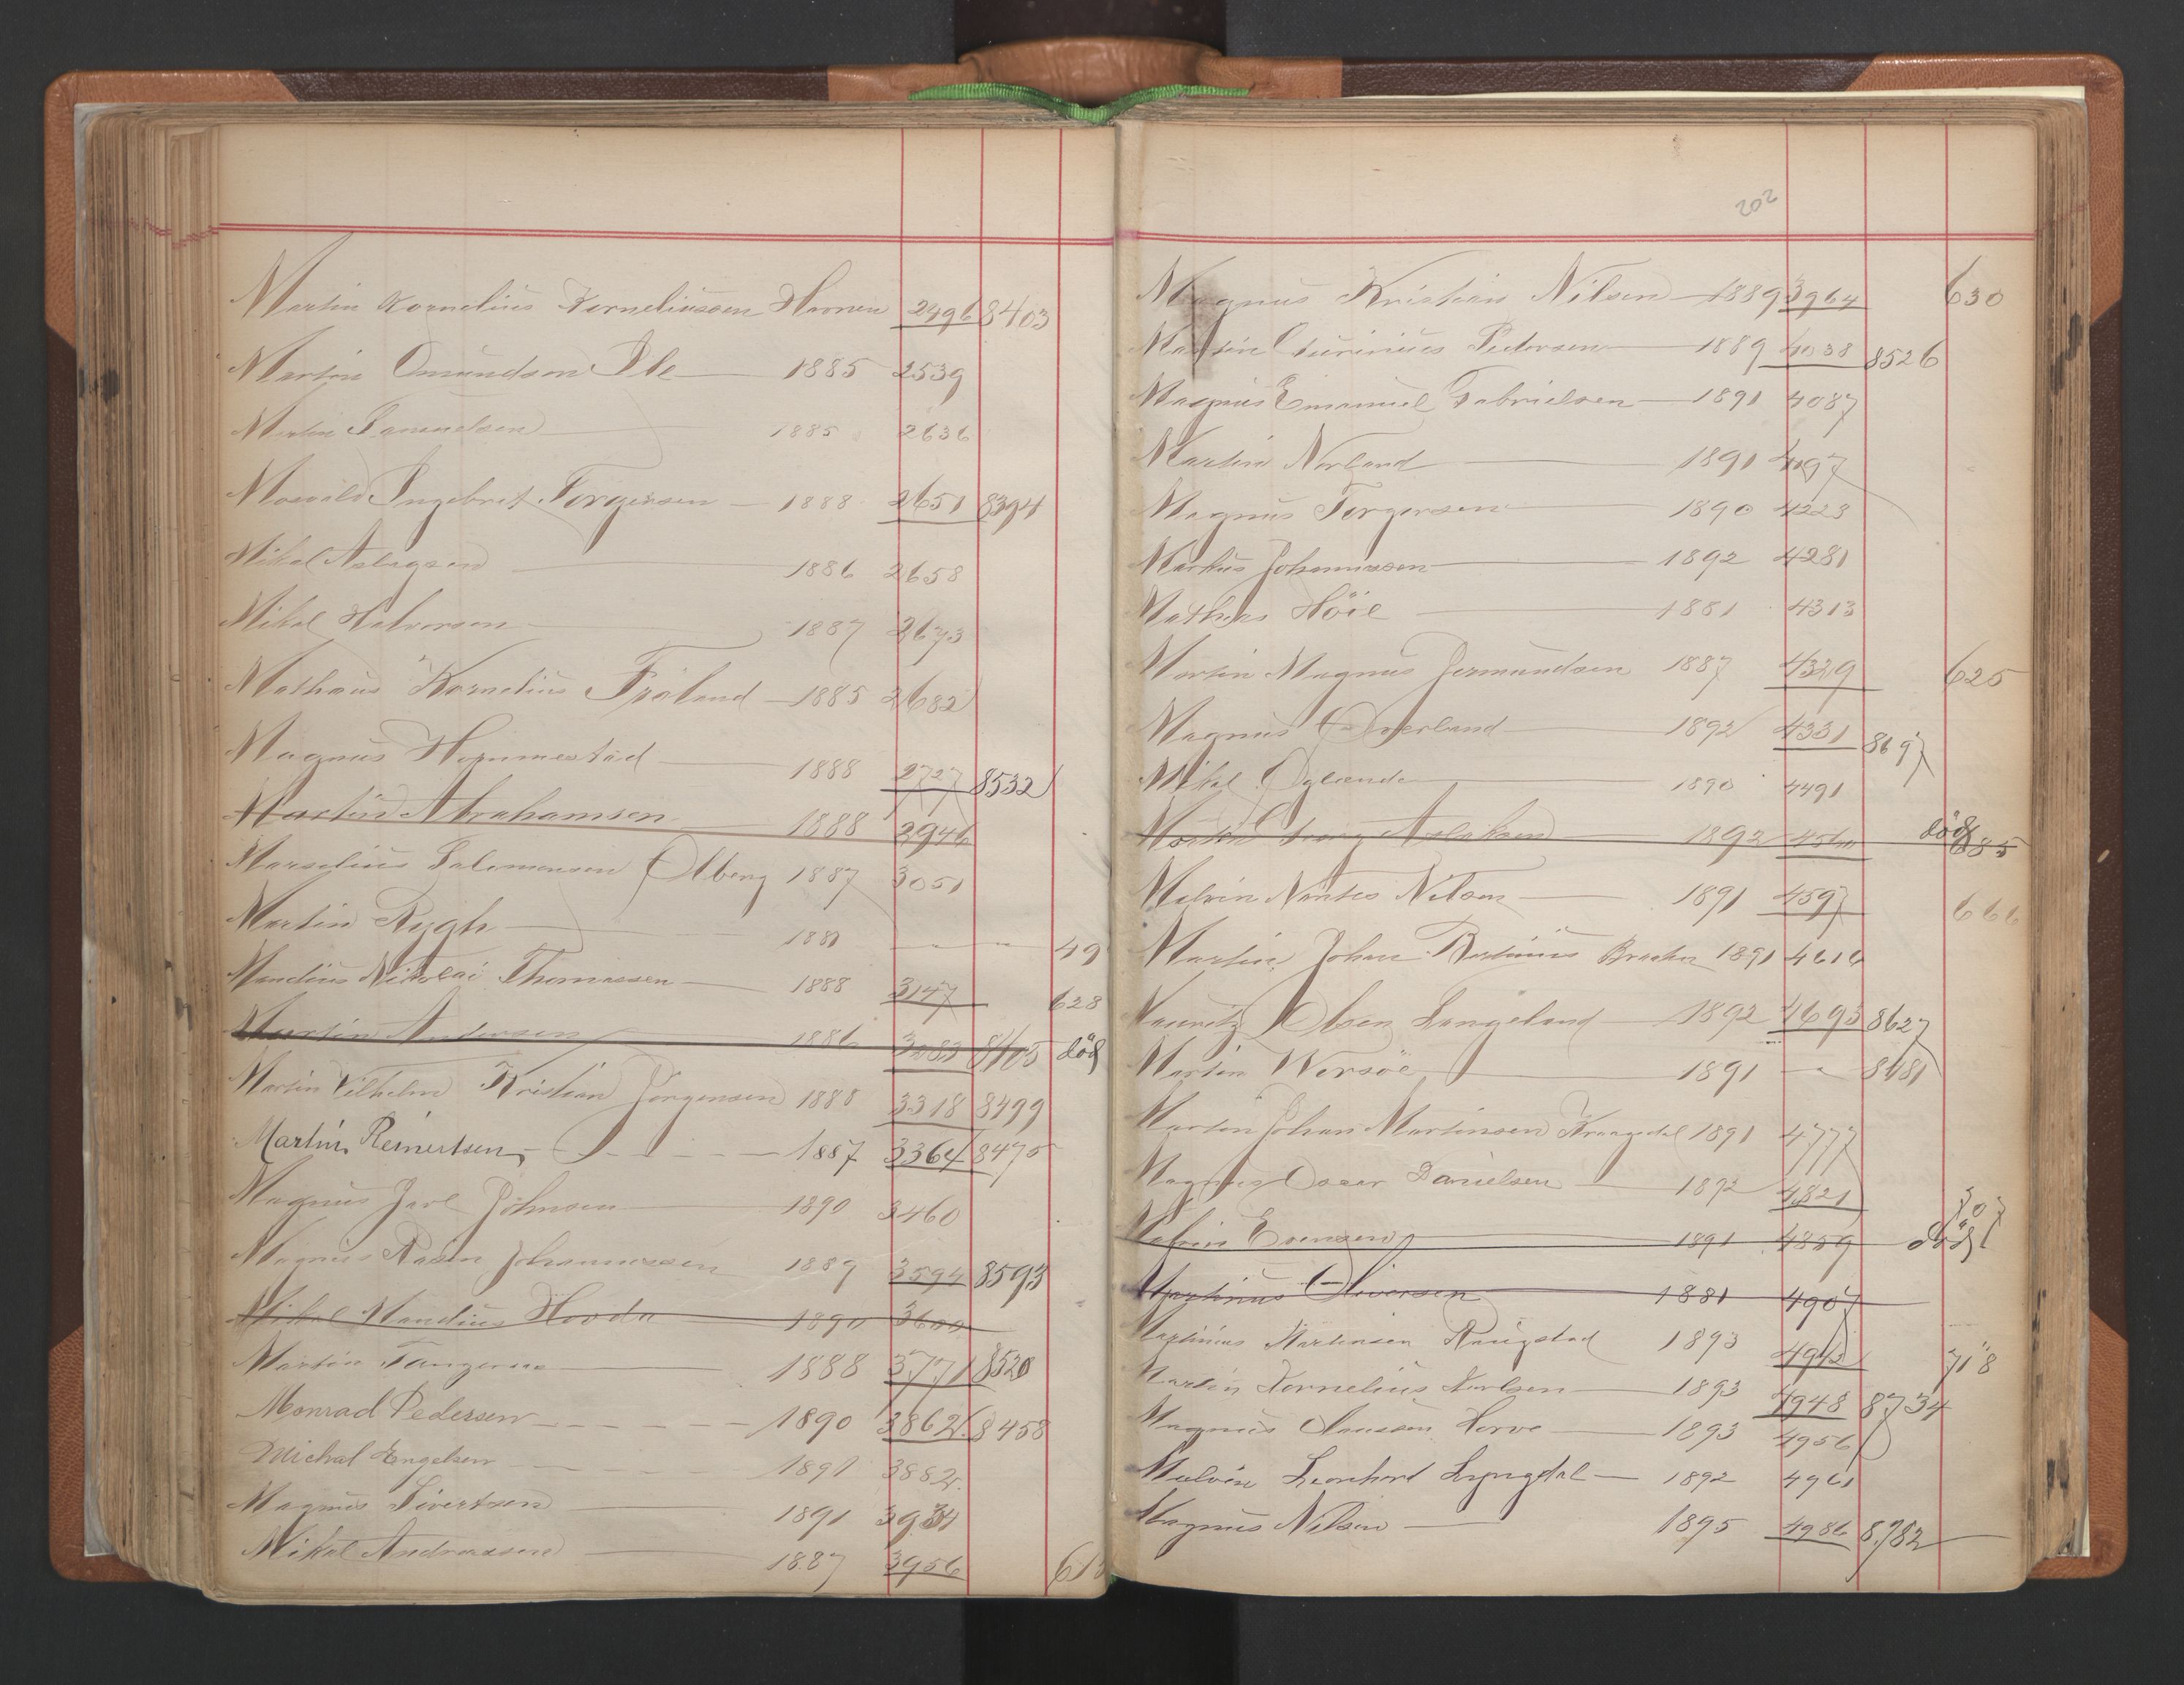 Martin Kornelius Korneliussen Havnen 2496 8403
Martin Omundsen 1885 2539
Martin Samuelsen 1885 2636
Ingebret Torgersen 1888 2651 8394
Mikal Aslagsen 1886 2658
Mikal Halvorsen 1887 2673
Mathæus Kornelius Fröland 1885 2682
Magnus Hommestad 1888 2727 8532
Martin Abrahamsen 1888 2946
Marselius Salomonsen Olberg 1887 3051
Martin Rygh 1881 49
Mandius Nikolai Thomassen 1888 3147 628
Martin Andersen 1886 3283 8405 död
Martin Vilhelm Kristian Jörgensen 1888 3318 8499
Martin Reinertsen 1887 3364 8475
Magnus Jarl Johnsen 1890 3460
Magnus Rasm Johannessen 1889 3594 8593
Mikal Mandius Hovda 1890 3600
Martin Tangeraas 1888 3771 8520
Monrad Pedersen 1890 3862 8458
Michal Engelsen 1891 3882
Magnus Sivertsen 1891 3934
Mikal Andreassen 1887 3956
202
Magnus Kristian Nilsen 1889 3964 630
Martin Pedersen 1889 4038 8526
Magnus Emanuel Gabrielsen 1891 4087
Martin Norland 1891 4197
Magnus Torgersen 1890 4223
Markus Johannessen 1892 4281
Mathias Höie 1881 4313
Martin Magnus Germundsen 1887 4329 625
Magnus Overland 1892 4331 8697
Mikal Oglænde 1890 4491
1892 död 685
Melvin Nilsen 1891 4597 666
Martin Johan Bertinius 1891 4616
Mauritz Olsen Langeland 1892 4693 8627
Martin Wersöe 1891 8481
Martin Johan Martinsen 1891 4777
Magnus Oscar Danielsen 1892 4821 707
Evensen 1891 4859 död
Martinus Oliversen 1881 4907
Martinius Mortensen Raugstad 1893 4943 718
Martin Kornelius Karlsen 1893 4948 8734
Magnus Claussen 1893 4956
Malvin Leonhard Lyngdal 1892 4961
Magnus Nilsen 1895 4986 8782